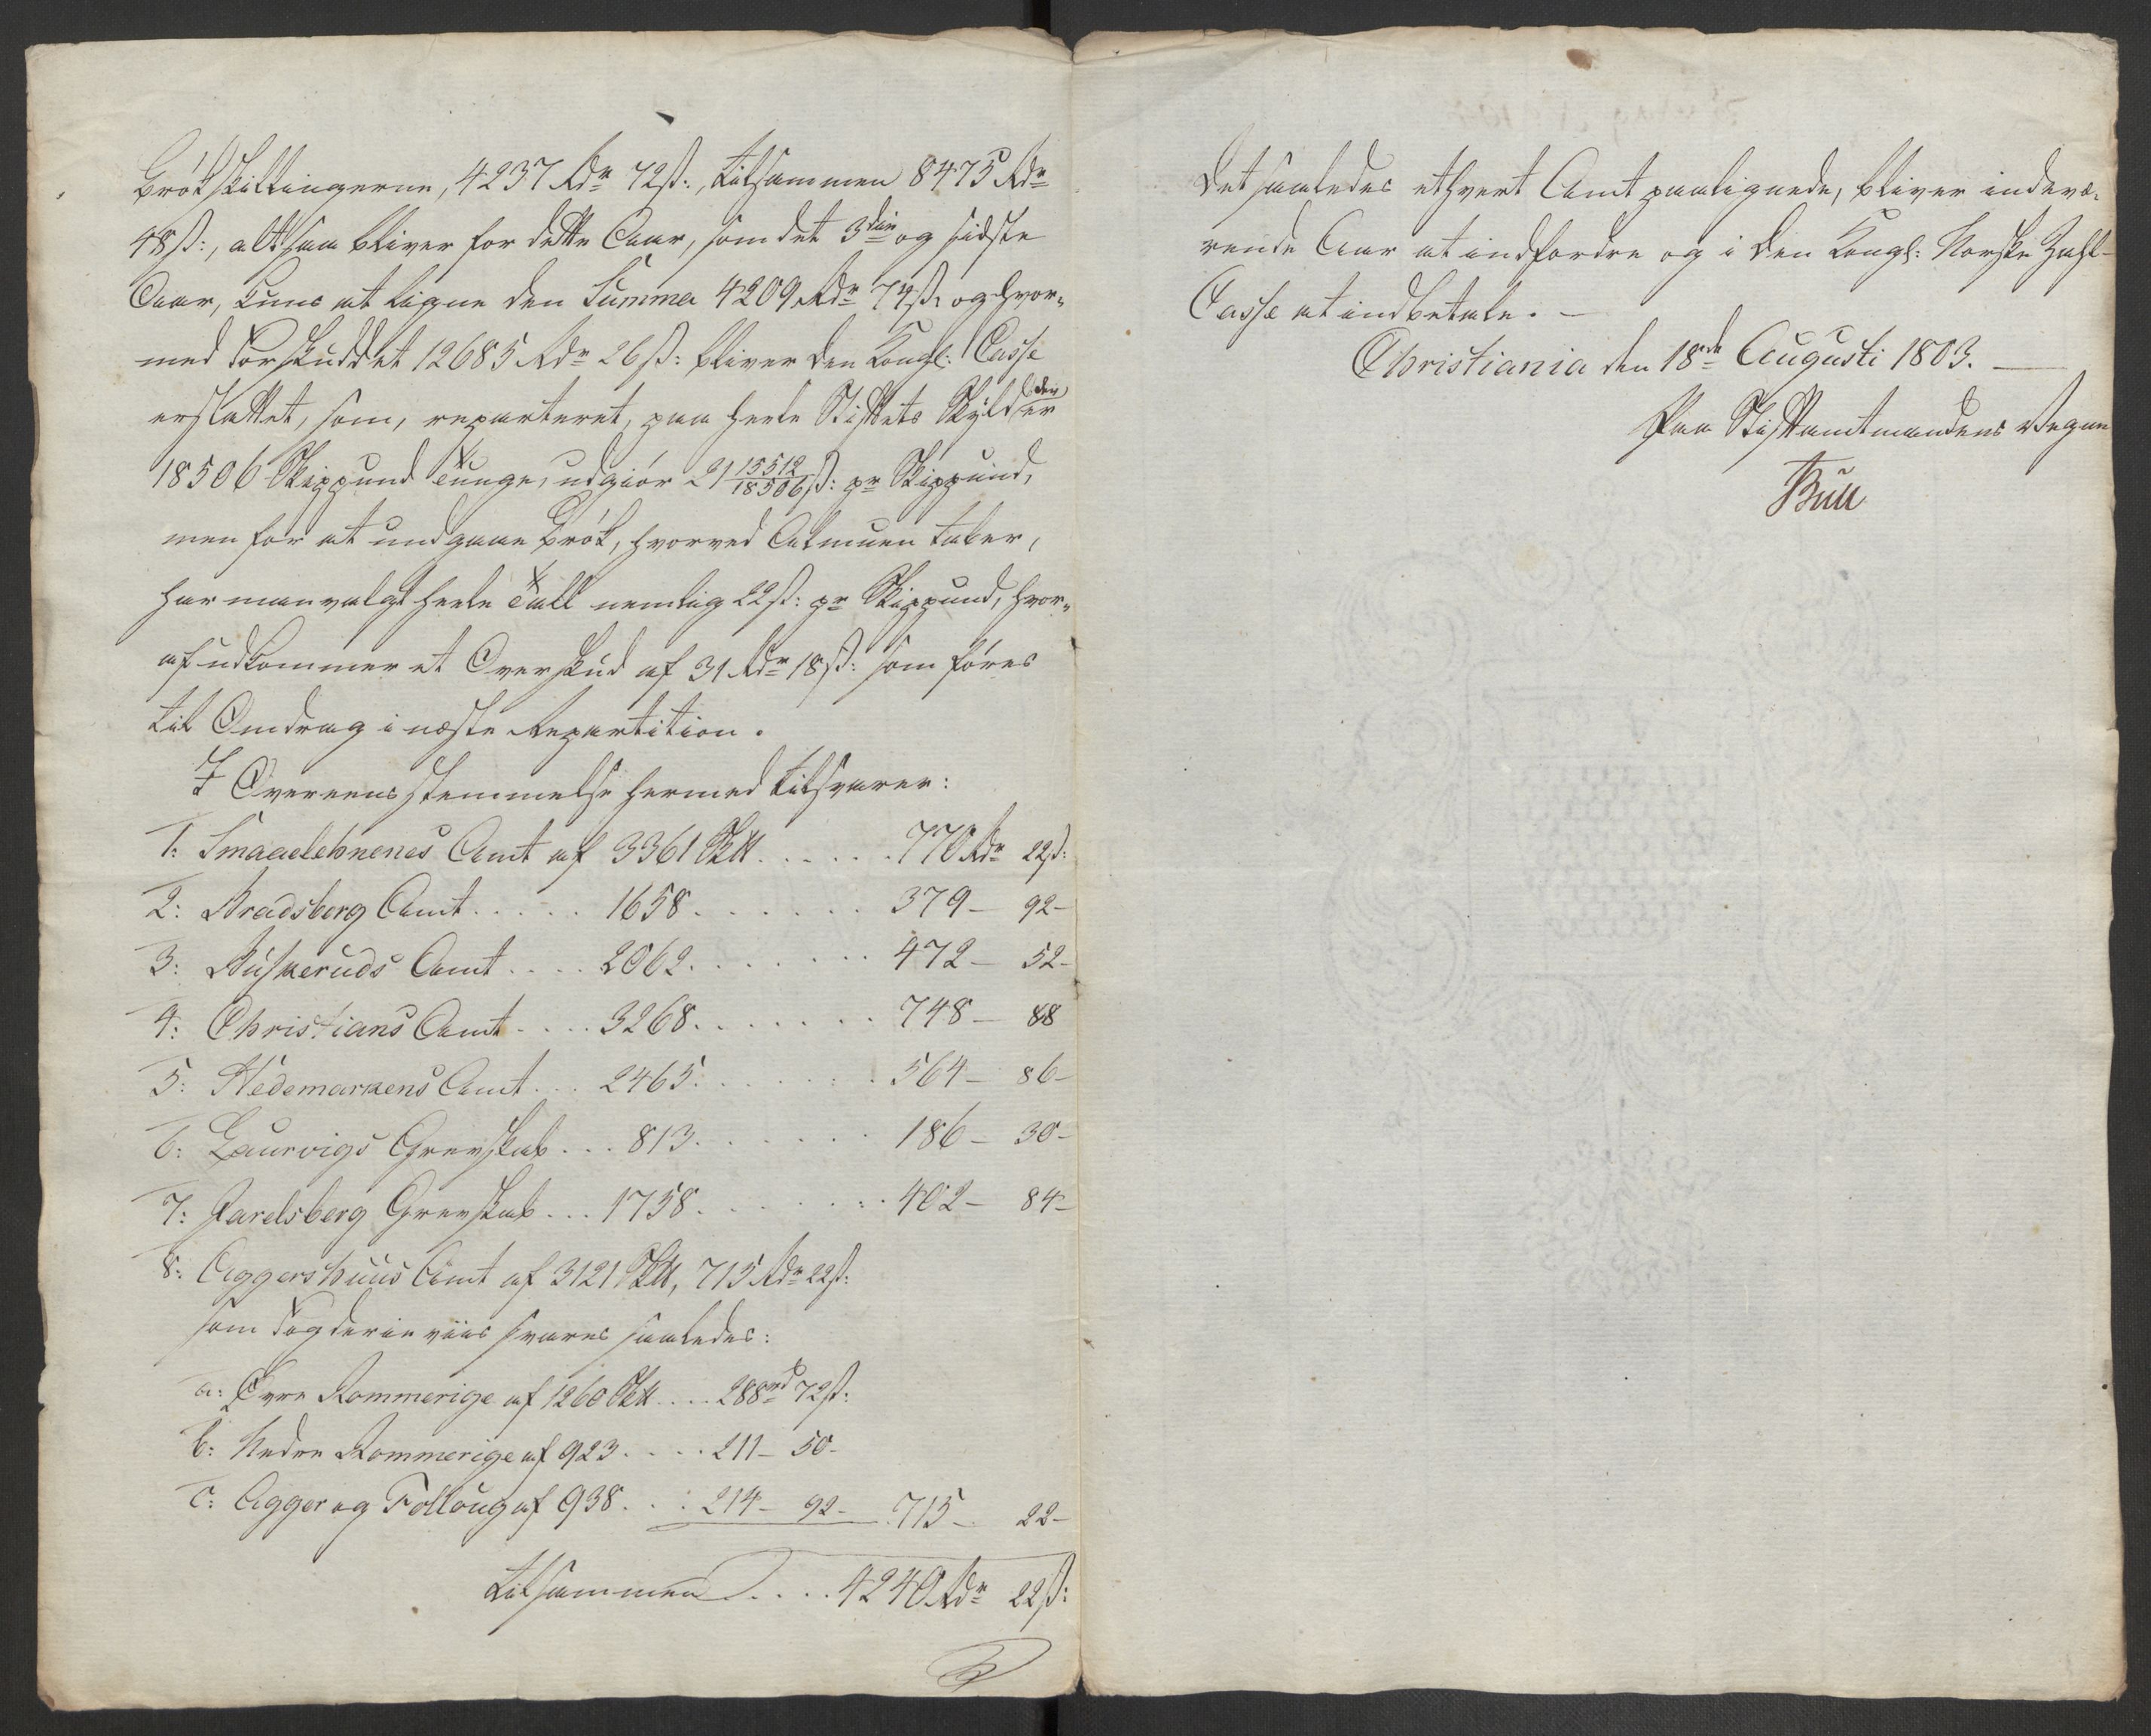 Brökskillingerne, 4237 Rdr 72ß:, tilsammen 8475 Rdr
48ß:, altsaa bliver for dette Aar, som det 3die og sidste
Aar, kuns at ligne den Summa 4209 Rdr 74ß: og hvor-
med Forskuddet 12685 Rdr 26ß: bliver den Kongl: Casse
erstattet, som, reparteret, paa heele Stiftets Skyld der er
18506 Skippund Tunge, udgiör 21 15512/18506 ß: pr Skippund,
men for at undgaae Brök, hvorved Almuen taber,
har man valgt heele Tall nemlig 22ß: pr Skippund, hvor-
af udkommer et Overskud af 31 Rdr 18ß: som föres
til Omdrag i næste Repartition.
I Overeensstemmelse hermed tilsvarer:
1: Smaalehnenes Amt af 3361 Sk℔ . . . . . 770 Rdr 22ß:
2: Bradsberg Amt . . . . . 1658 . . . . . . 379 - 92 -
3: Buskeruds Amt . . . . 2062 . . . . . . . 472 - 52 -
4: Christians Amt . . . . 3268 . . . . . . . 748 - 88
5: Hedemarkens Amt . . . 2465 . . . . . . 564 - 86 -
6: Laurvigs Grevskab . . . 813 . . . . . . 186 - 30 -
7: Jarelsberg Grevskab . . . 1758 . . . . . . 402 - 84 -
8: Aggershuus Amt af 3121 Sk℔, 715 Rdr 22ß:
som Fogderie viis svares saaledes:
a: Övre Rommerige af 1260 Sk℔ . . . . 288rd 72ß:
b: Nedre Rommerige af 923 . . . . 211 - 50 -
c: Agger og Folloug af 938 . . : 214 - 92 - 715 - 22 -
Tilsammen . . . . 4240 Rdr 22ß:
Det saaledes ethvert Amt paalignede, bliver indevæ-
rende Aar at indfordre og i den Kongl: Norske Zahl-
Casse at indbetale. -
Christiania den 18de Augusti 1803. -
Paa Stiftamtmandens Vegne
Bull